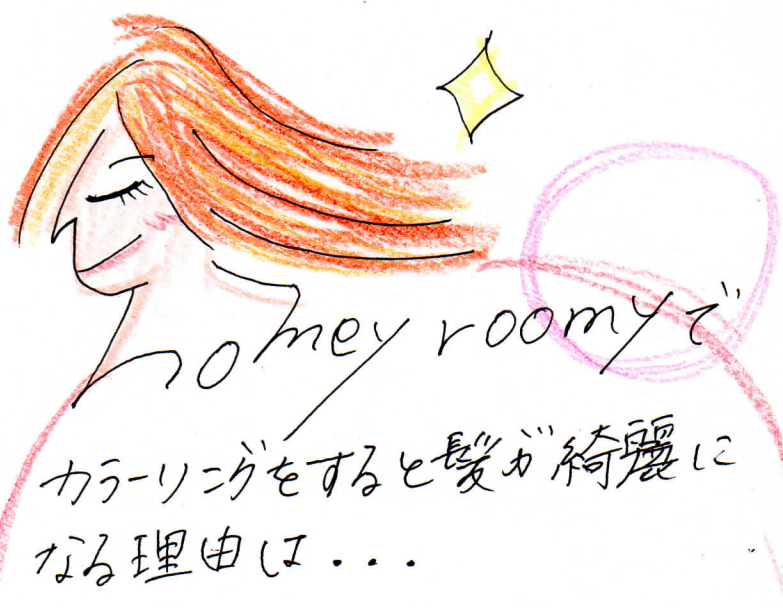 homey roomyで
カラーリングをすると髪が綺麗に
なる理由は・・・